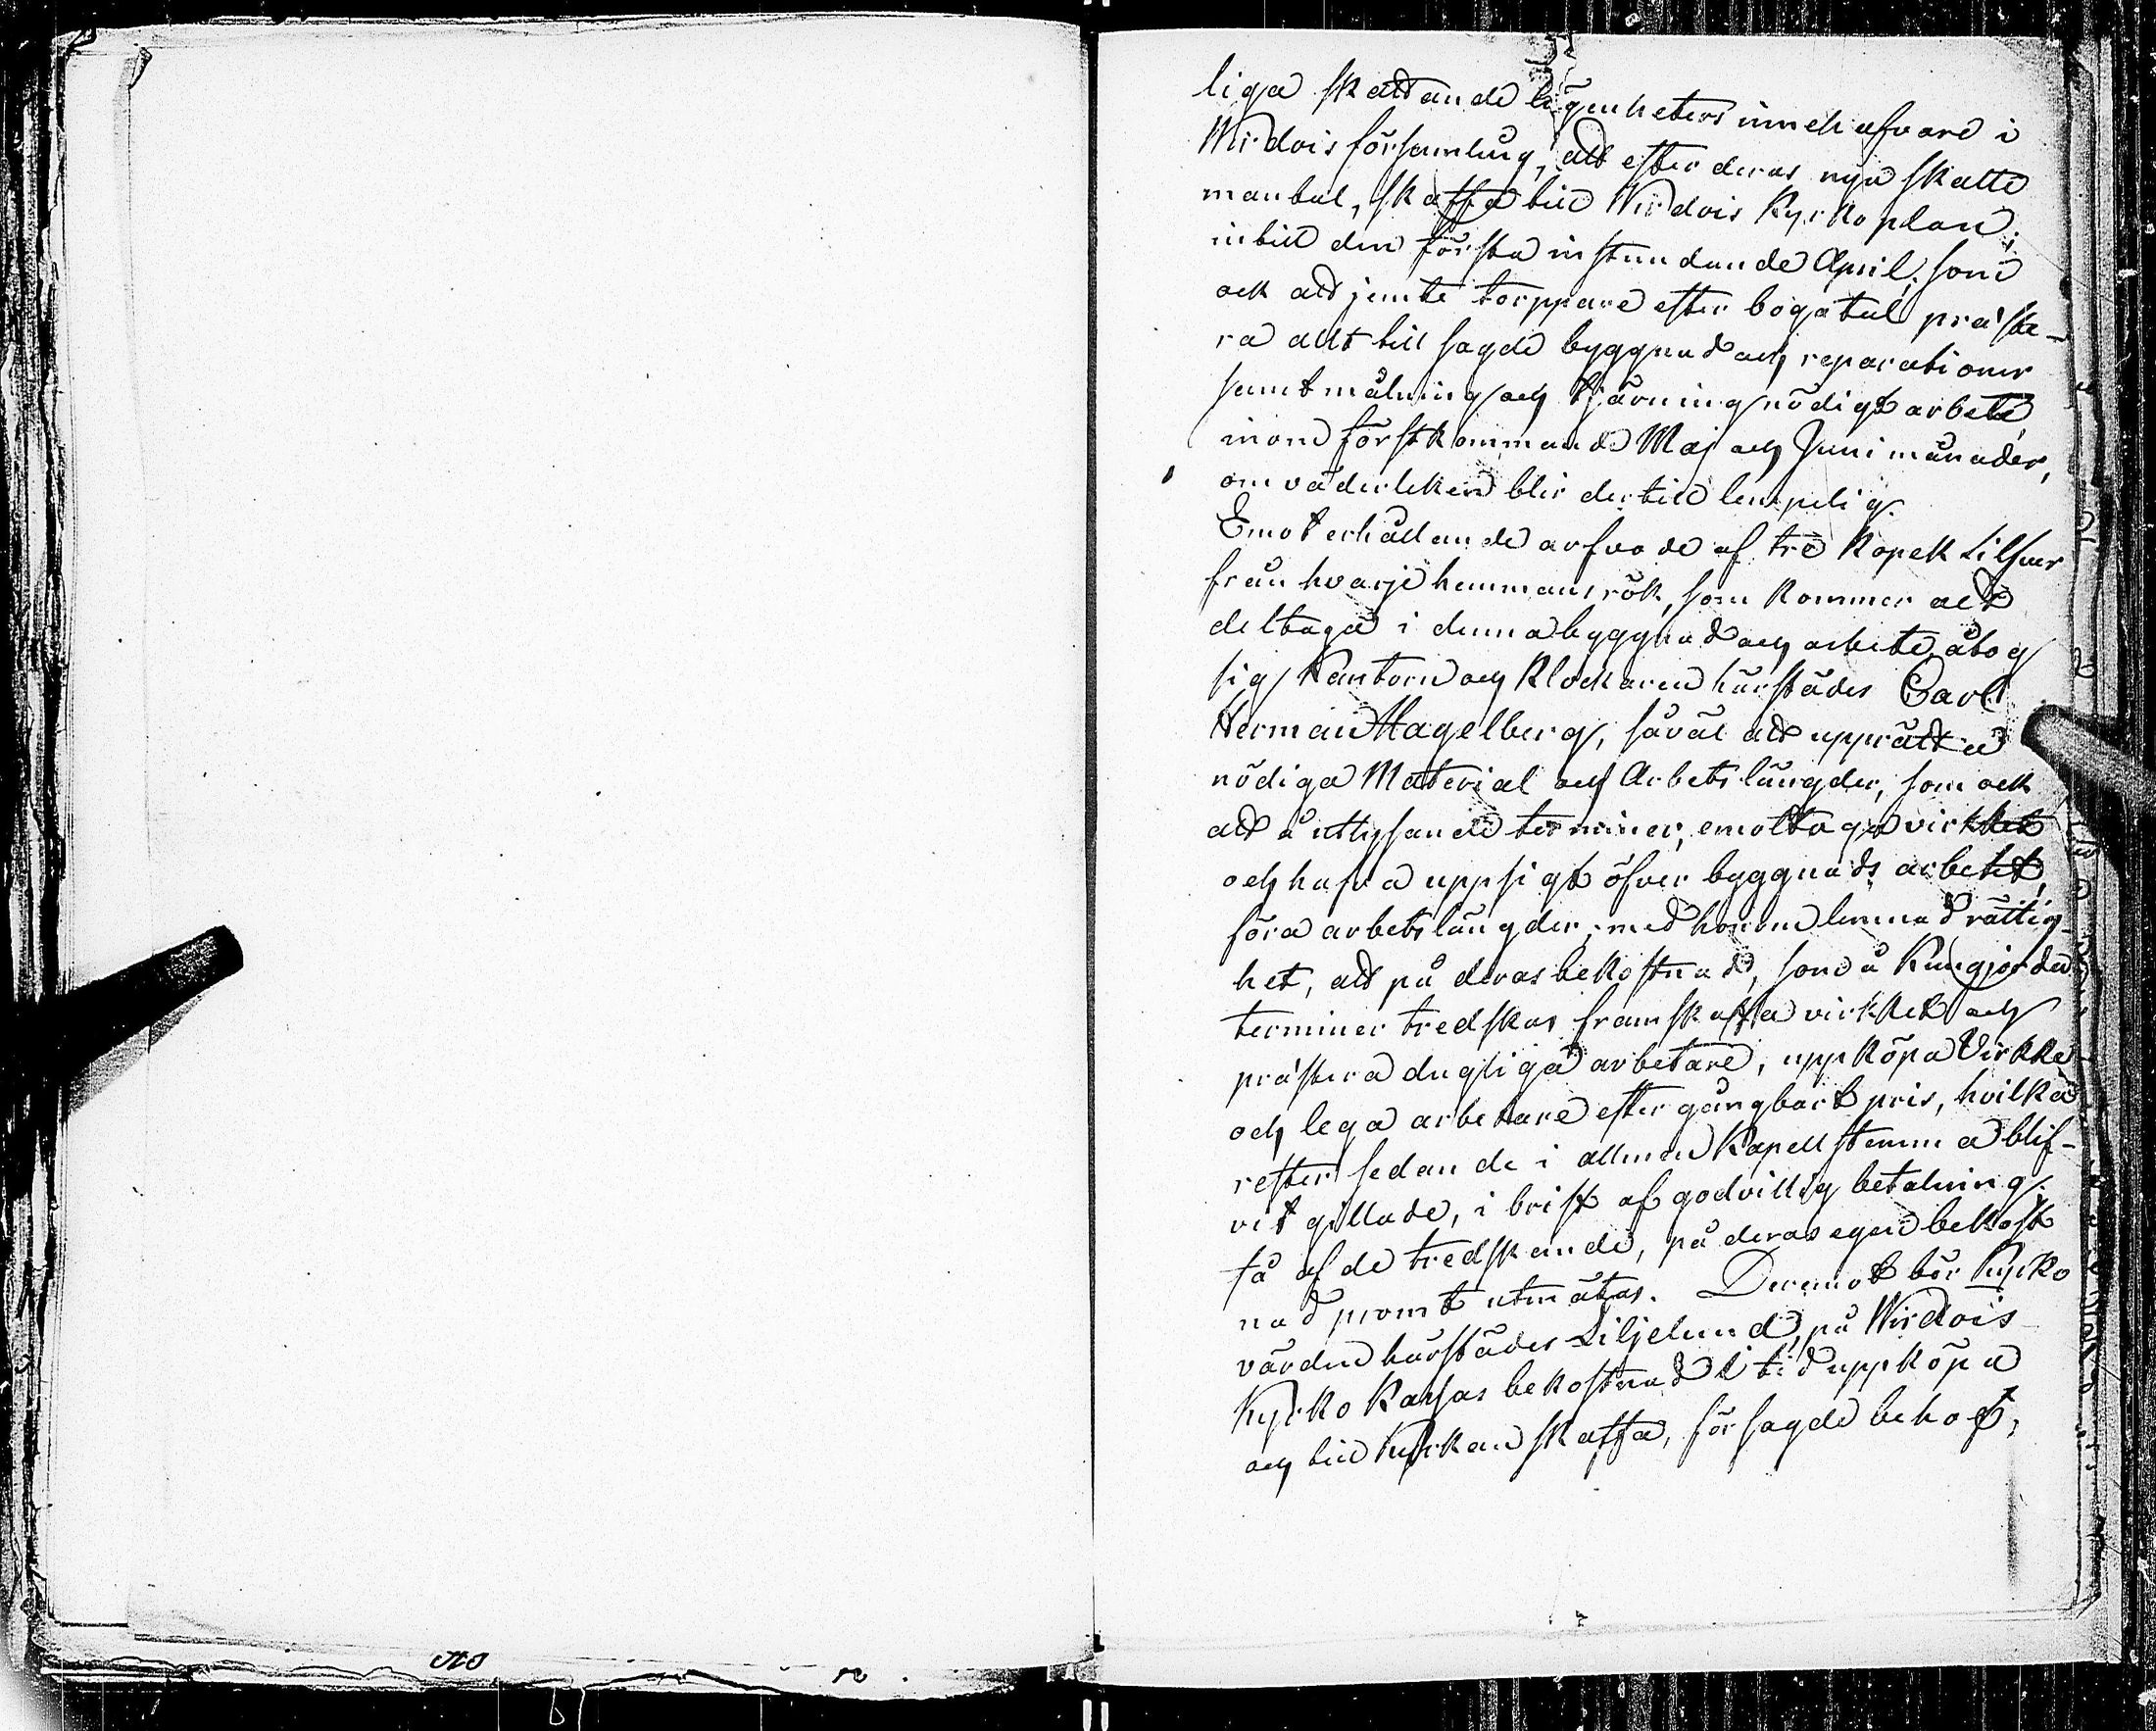 liga skattande lägenheters innehafvare i
Wirdois församling, att efter deras nya skatte
mantal, skaffa till Wirdois Kyrkoplan,
intill den första instundande April, som
ock att jemte torppare efter bogatal præste-
ra allt till sagde byggnad och reparationer
samt målning och tjärning nödigt arbete,
inom förstkommande Maj och Juni månader,
om väderleken blir dertill lempelig.
Emot erhållande arfvode af tre Kopek Silfver
från hvarje hemmansrök, som kommer att
deltaga i denna byggnad och arbete, åtog
sig Kantorn och Klockaren härstädes Carl
Herman Hagelberg, såväl att upprätta
nödiga Material och Arbetslängder, som ock
att å utlysande terminer, emottaga virkket
och hafva uppsigt öfver byggnads arbetet,
föra arbetslängder, med honom lemnad rättig-
het, att på deras bekostnad, som å kungjorda
terminer tredskas framskaffa virkket och
præstera dugliga arbetare, uppköpa Virkke
och lega arbetare efter gångbart pris, hvilka
rester sedan de i allmän Kapellstemma blif-
vit gillade, i brist af godvillig betalning,
få af de tredskande, på deras egen bekost
nad promt utmätas. Deremot bör Kyrko
värden härstädes Liljelund, på Wirdois
Kyrko Kassas bekostnad i tid uppköpa
och till Kyrkan skaffa, för sagde behof,